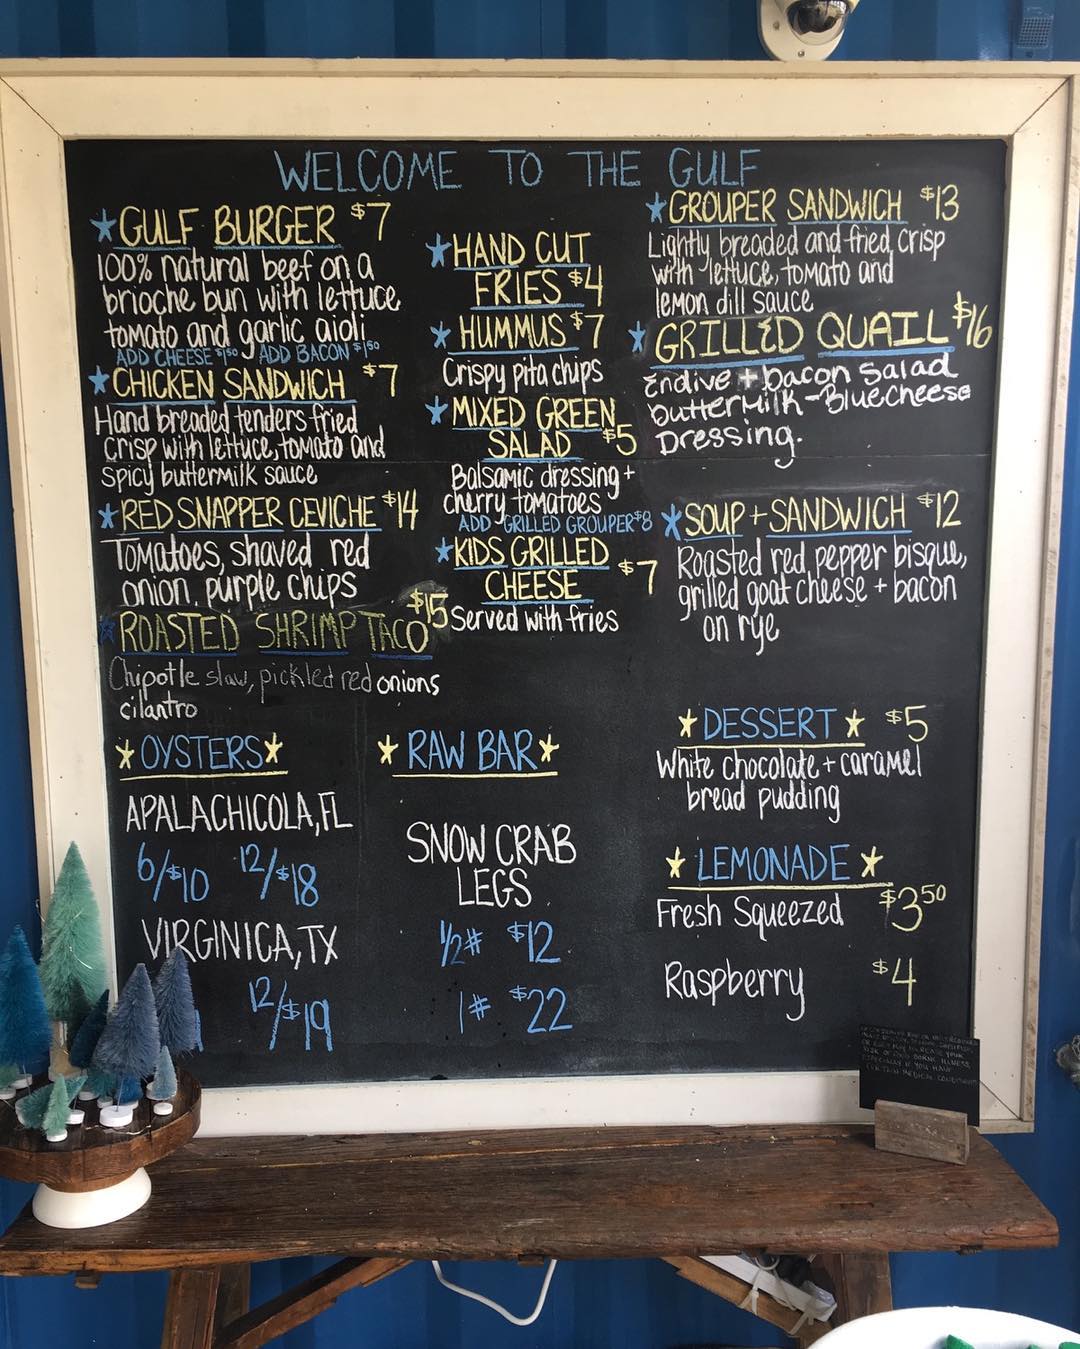 WELCOME TO THE GULF
GULF BURGER $7
100% natural beef on a
brioche bun with lettuce
tomato and garlic aioli
ADD CHEESE $1.50 ADD BACON $1.50
CHICKEN SANDWICH $7
Hand breaded tenders fried
crisp with lettuce, tomato and
spicy buttermilk sauce
RED SNAPPER CEVICHE $14
Tomatoes, shaved red
onion, purple chips
ROASTED SHRIMP TACO $15
Chipotle slaw, pickled red onions
cilantro
HAND CUT
FRIES $4
HUMMUS $7
Crispy pita chips
MIXED GREEN
SALAD $5
Balsamic dressing +
cherry tomatoes
ADD GRILLED GROUPER $8
KIDS GRILLED
CHEESE $7
Served with fries
GROUPER SANDWICH $13
Lightly breaded and fried crisp
with lettuce, tomato and
lemon dill sauce
GRILLED QUAIL $16
Endive + bacon salad
buttermilk-Bluecheese
Dressing.
SOUP + SANDWICH $12
Roasted red pepper bisque,
grilled goat cheese + bacon
on rye
OYSTERS
APALACHICOLA, FL
6/$10 12/$18
VIRGINICA, TX
12/$19
RAW BAR
SNOW CRAB
LEGS
1/2# $12
1# $22
DESSERT $5
White chocolate + caramel
bread pudding
LEMONADE
Fresh Squeezed $3.50
Raspberry $4
RISK OF FOOD BORNE ILLNESS,
ESPECIALLY IF YOU HAVE
CERTAIN MEDICAL CONDITIONS